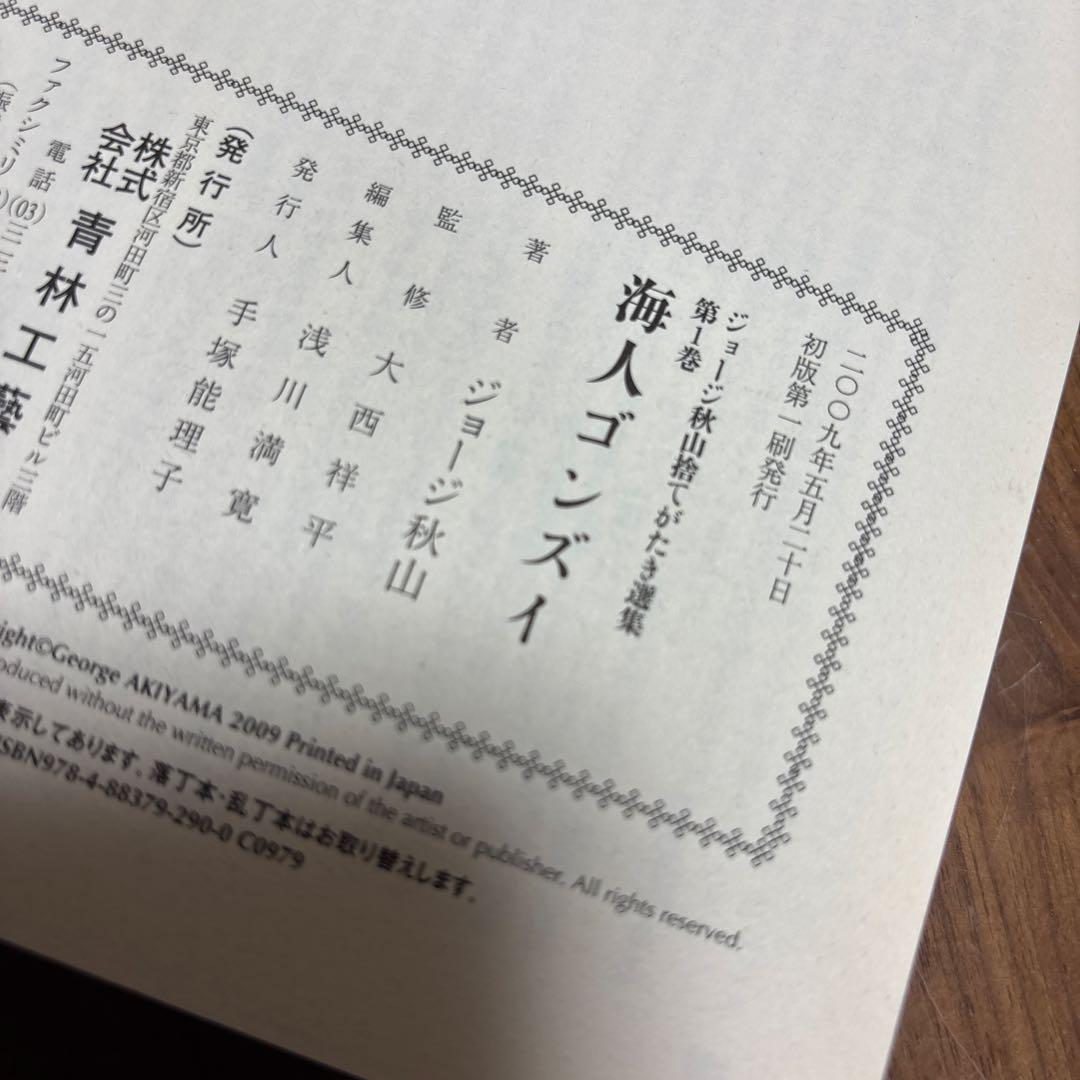 二〇〇九年五月二十日
初版第一刷発行
ジョージ秋山捨てがたき選集
第1巻
海人ゴンズイ
著者 ジョージ秋山
監修 大西祥平
編集人 浅川満寛
発行人 手塚能理子
(発行所)
東京都新宿区河田町三の一五河田町ビル三階
株式会社 青林工藝
電話(03)
ファクシミリ
©George AKIYAMA 2009 Printed in Japan
without the written permission of the artist or publisher. All rights reserved.
表示してあります。落丁本・乱丁本はお取り替えします。
ISBN978-4-88379-290-0 C0979